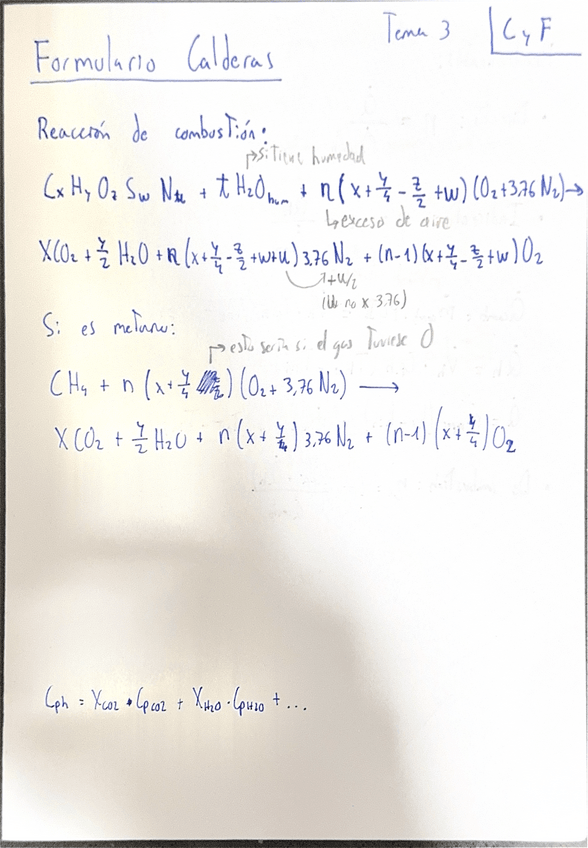 Tema 3 | C y F
Formulario Calderas
Reacción de combustión:
↱ si tiene humedad
CxHyOzSwNu + t H₂O hum + n(x + y/4 - z/2 + w)(O₂ + 3,76 N₂) →
↳ exceso de aire
XCO₂ + y/2 H₂O + n(x + y/4 - z/2 + w+u) 3,76 N₂ + (n-1)(x + y/4 - z/2 + w) O₂
1+u/2
(u no x 3,76)
Si es metano:
↱ esto sería si el gas tuviese O
CH₄ + n(x + y/4)(O₂ + 3,76 N₂) →
XCO₂ + y/2 H₂O + n(x + y/4) 3,76 N₂ + (n-1)(x + y/4) O₂
Cph = XCO2 · CpCO2 + XH2O · CpH2O + ...